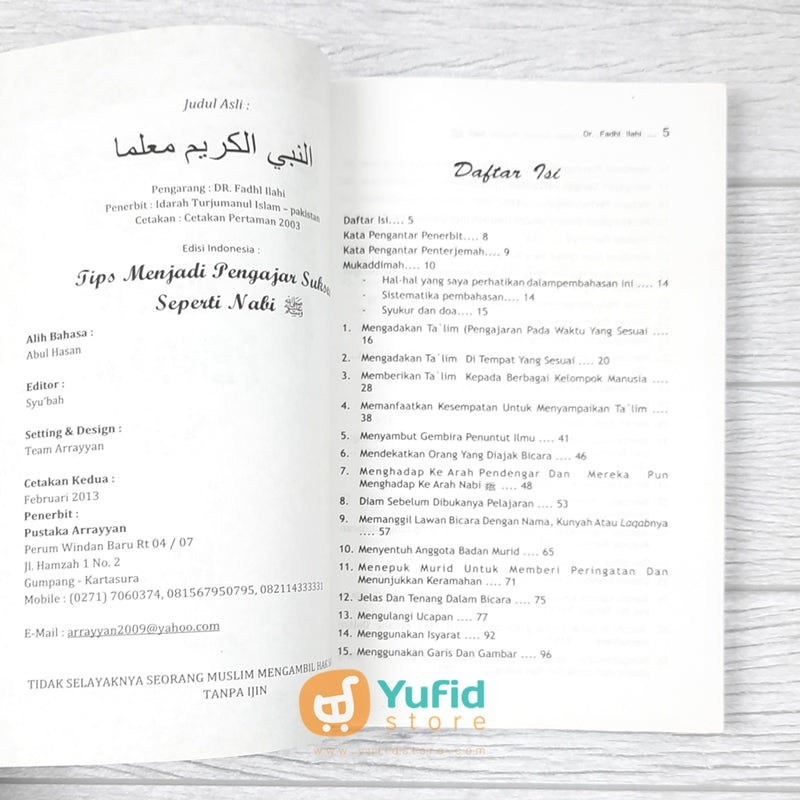 Judul Asli :
النبي الكريم معلما
Pengarang : DR. Fadhl Ilahi
Penerbit : Idarah Turjumanul Islam – pakistan
Cetakan : Cetakan Pertaman 2003
Edisi Indonesia :
Tips Menjadi Pengajar
Seperti Nabi ﷺ
Alih Bahasa :
Abul Hasan
Editor :
Syu'bah
Setting & Design :
Team Arrayyan
Cetakan Kedua :
Februari 2013
Penerbit :
Pustaka Arrayyan
Perum Windan Baru Rt 04 / 07
Jl. Hamzah 1 No. 2
Gumpang - Kartasura
Mobile : (0271) 7060374, 081567950795, 08211433331
E-Mail : arrayyan2009@yahoo.com
TIDAK SELAYAKNYA SEORANG MUSLIM MENGAMBIL
TANPA IJIN
Dr. Fadhl Ilahi .... 5
Daftar Isi
Daftar Isi.... 5
Kata Pengantar Penerbit.... 8
Kata Pengantar Penterjemah.... 9
Mukaddimah.... 10
- Hal-hal yang saya perhatikan dalampembahasan ini .... 14
- Sistematika pembahasan.... 14
- Syukur dan doa.... 15
1. Mengadakan Ta`lim (Pengajaran Pada Waktu Yang Sesuai ....
16
2. Mengadakan Ta`lim Di Tempat Yang Sesuai .... 20
3. Memberikan Ta`lim Kepada Berbagai Kelompok Manusia ....
28
4. Memanfaatkan Kesempatan Untuk Menyampaikan Ta`lim ....
38
5. Menyambut Gembira Penuntut Ilmu .... 41
6. Mendekatkan Orang Yang Diajak Bicara .... 46
7. Menghadap Ke Arah Pendengar Dan Mereka Pun
Menghadap Ke Arah Nabi ﷺ .... 48
8. Diam Sebelum Dibukanya Pelajaran .... 53
9. Memanggil Lawan Bicara Dengan Nama, Kunyah Atau Laqabnya
.... 57
10. Menyentuh Anggota Badan Murid .... 65
11. Menepuk Murid Untuk Memberi Peringatan Dan
Menunjukkan Keramahan .... 71
12. Jelas Dan Tenang Dalam Bicara .... 75
13. Mengulangi Ucapan .... 77
14. Menggunakan Isyarat .... 92
15. Menggunakan Garis Dan Gambar .... 96
Yufid
store
www.yufidstore.com